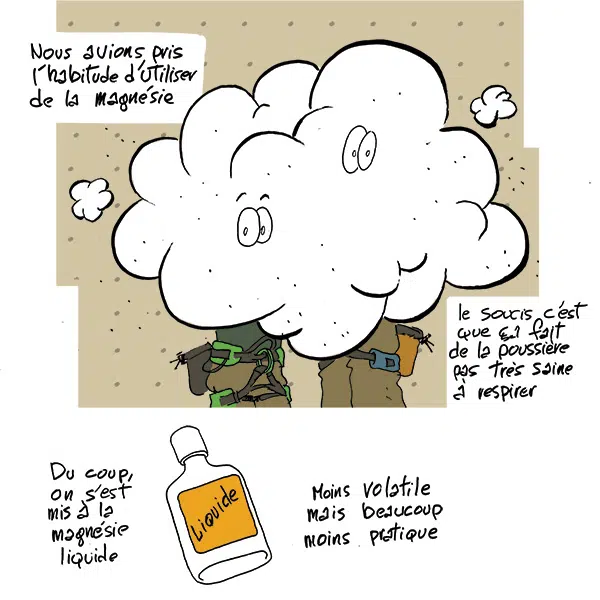 Nous avions pris
l'habitude d'utiliser
de la magnésie
le soucis c'est
que ça fait
de la poussière
pas très saine
à respirer
Du coup,
on s'est
mis à la
magnésie
liquide
Liquide
Moins volatile
mais beaucoup
moins pratique